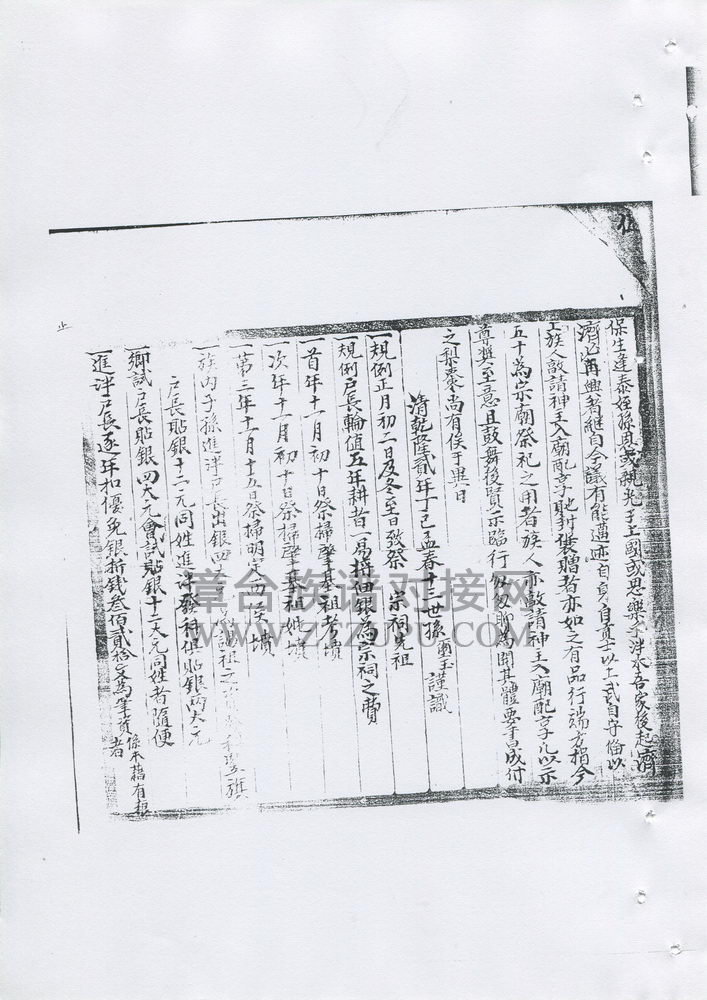 伍
保生逢泰姪孫恩義親光于王國或思樂于泮水吾家後起濟
濟必再興者繼自今議有能邁迹自身自貢士以上式自守備以
上族人敬請神主入廟配享馳封褒贈者亦如之有品行端方捐今
五十為宗廟祭祀之用者族人亦敬請神主入廟配享凡以示
尊獎至意且鼓舞後賢示臨行匆匆聊為開其體要書成付
之梨棗尚有俟于異日
清乾隆貳年丁巳孟春十三世孫爾玉謹識
一規例正月初二日及冬至日致祭宗祠先祖
規例户長輪值五年耕者一易將佃銀為宗祠之費
一首年十一月初十日祭掃肇基祖考墳
次年十一月初十日祭掃肇基祖妣墳
一第三年十一月十五日祭掃明定 墳
一族内子孫進泮户長出銀四 謁祖之
户長貼銀十二元同姓進泮發科俱貼銀兩大元
一鄉試户長貼銀四大元會試貼銀十二大元同姓者隨便
一進泮户長逐年扣優免銀折錢叁佰貳拾文為筆資係本籍有振者
止
漳台族谱对接网
WWW.ZTZUPU.COM